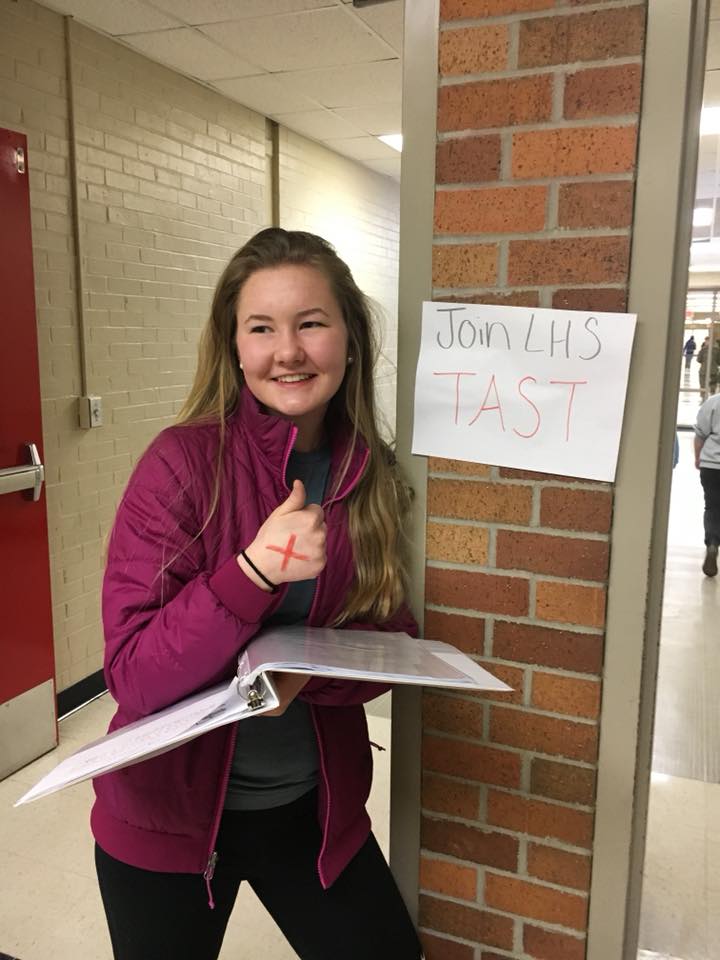 Join LHS
TAST